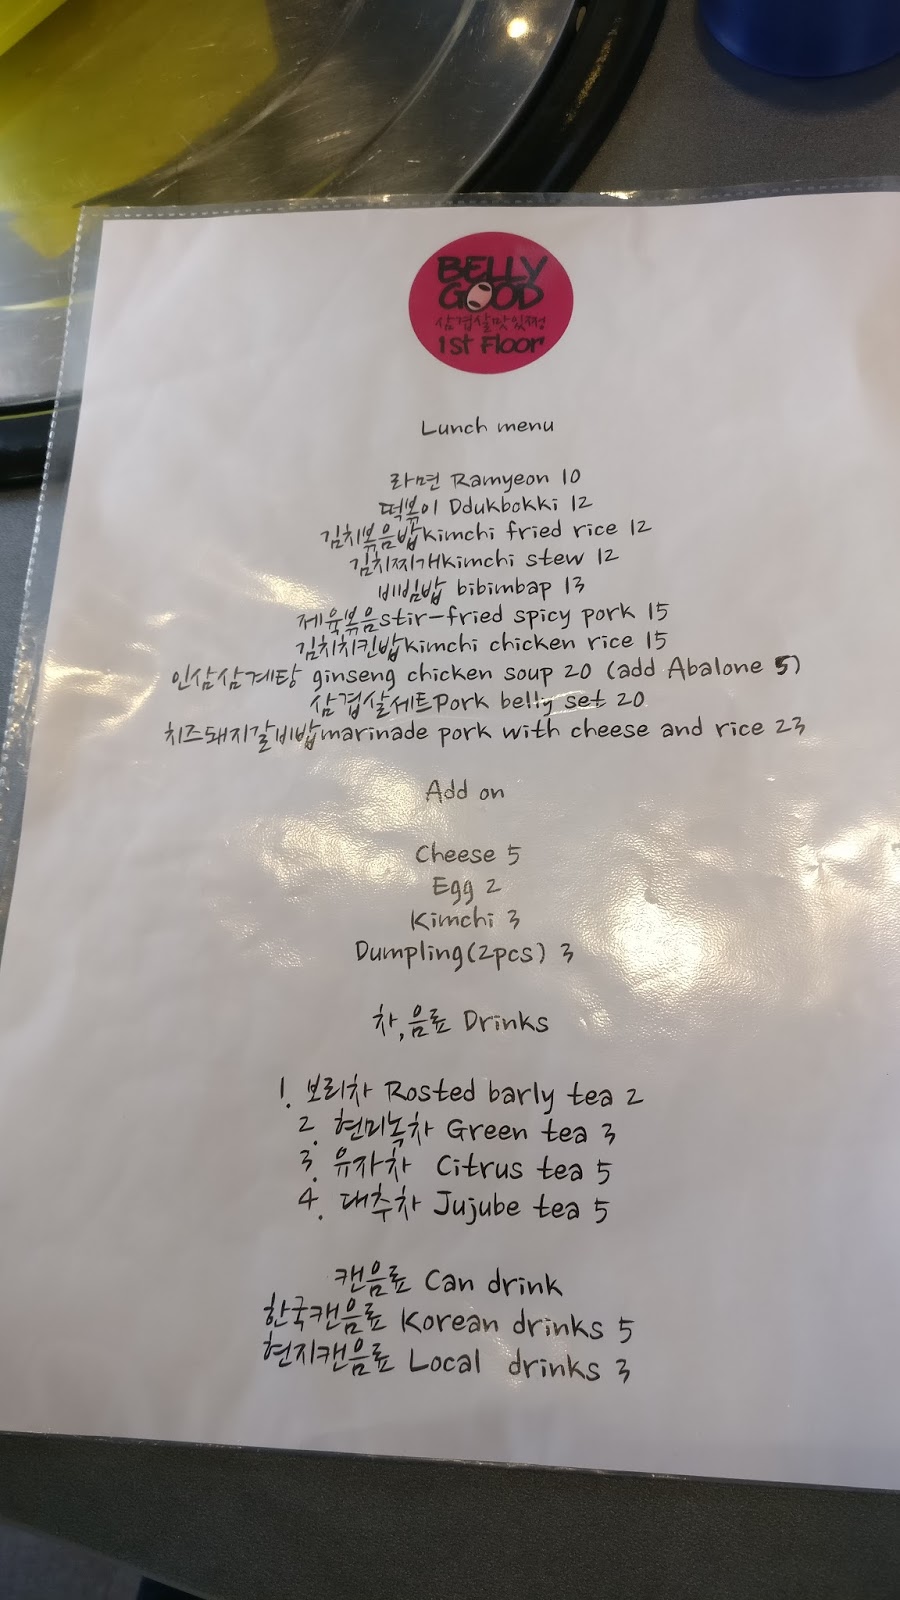 BELLY
GOOD
삼겹살맛있쪙
1st Floor
Lunch menu
라면 Ramyeon 10
떡볶이 Ddukbokki 12
김치볶음밥kimchi fried rice 12
김치찌개kimchi stew 12
비빔밥 bibimbap 13
제육볶음stir-fried spicy pork 15
김치치킨밥kimchi chicken rice 15
인삼삼계탕 ginseng chicken soup 20 (add Abalone 5)
삼겹살세트Pork belly set 20
치즈돼지갈비밥marinade pork with cheese and rice 23
Add on
Cheese 5
Egg 2
Kimchi 3
Dumpling(2pcs) 3
차,음료 Drinks
1. 보리차 Rosted barly tea 2
2. 현미녹차 Green tea 3
3. 유자차 Citrus tea 5
4. 대추차 Jujube tea 5
캔음료 Can drink
한국캔음료 Korean drinks 5
현지캔음료 Local drinks 3